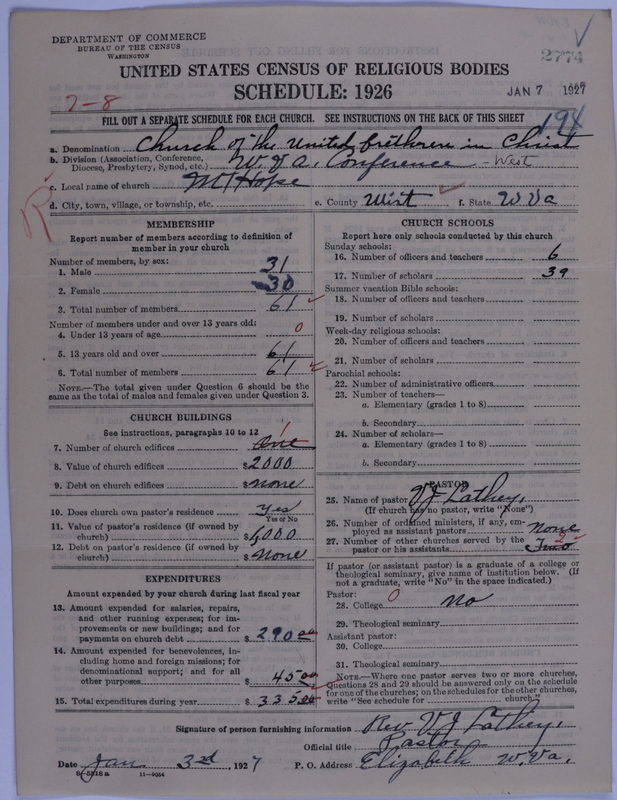 DEPARTMENT OF COMMERCE
BUREAU OF THE CENSUS
WASHINGTON
2774
UNITED STATES CENSUS OF RELIGIOUS BODIES
SCHEDULE: 1926
JAN 7 1927
7-8
FILL OUT A SEPARATE SCHEDULE FOR EACH CHURCH. SEE INSTRUCTIONS ON THE BACK OF THIS SHEET
194
a. Denomination Church of the United brethren in Christ
b. Division (Association, Conference, Diocese, Presbytery, Synod, etc.) W. Va. Conference - West
c. Local name of church Mt Hope
d. City, town, village, or township, etc. e. County Wirt f. State W Va
MEMBERSHIP
Report number of members according to definition of member in your church
Number of members, by sex:
1. Male 31
2. Female 30
3. Total number of members 61
Number of members under and over 13 years old:
4. Under 13 years of age 0
5. 13 years old and over 61
6. Total number of members 61
NOTE.—The total given under Question 6 should be the same as the total of males and females given under Question 3.
CHURCH BUILDINGS
See instructions, paragraphs 10 to 12
7. Number of church edifices One 1
8. Value of church edifices $2000
9. Debt on church edifices $None
10. Does church own pastor's residence Yes
Yes or No
11. Value of pastor's residence (if owned by church) $6,000
12. Debt on pastor's residence (if owned by church) $None
EXPENDITURES
Amount expended by your church during last fiscal year
13. Amount expended for salaries, repairs, and other running expenses; for improvements or new buildings; and for payments on church debt $290 00
14. Amount expended for benevolences, including home and foreign missions; for denominational support; and for all other purposes $45 00
15. Total expenditures during year $335 00
CHURCH SCHOOLS
Report here only schools conducted by this church
Sunday schools:
16. Number of officers and teachers 6
17. Number of scholars 39
Summer vacation Bible schools:
18. Number of officers and teachers
19. Number of scholars
Week-day religious schools:
20. Number of officers and teachers
21. Number of scholars
Parochial schools:
22. Number of administrative officers
23. Number of teachers—
a. Elementary (grades 1 to 8)
b. Secondary
24. Number of scholars—
a. Elementary (grades 1 to 8)
b. Secondary
PASTOR
25. Name of pastor V J Lathey,
(If church has no pastor, write "None")
26. Number of ordained ministers, if any, employed as assistant pastors None
27. Number of other churches served by the pastor or his assistants Two 2
If pastor (or assistant pastor) is a graduate of a college or theological seminary, give name of institution below. (If not a graduate, write "No" in the space indicated.)
Pastor: 0
28. College No
29. Theological seminary
Assistant pastor:
30. College
31. Theological seminary
NOTE.—Where one pastor serves two or more churches, Questions 28 and 29 should be answered only on the schedule for one of the churches; on the schedules for the other churches, write "See schedule for church."
Signature of person furnishing information Rev. V J Lathey,
Official title Pastor
Date Jan 3rd, 1927 P. O. Address Elizabeth W. Va.
11-9054